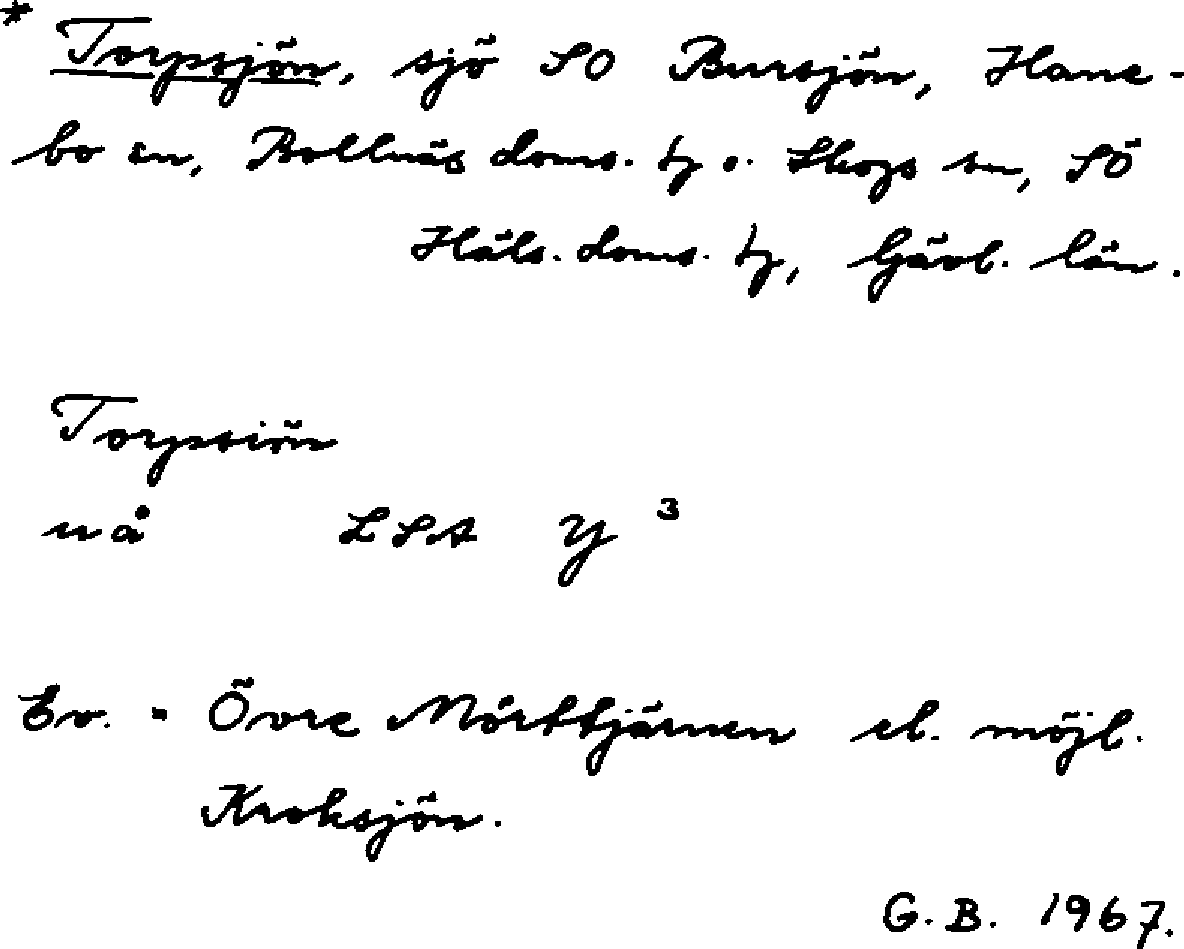 * Torpsjön, sjö SO Bursjön, Hane-
bo sn, Bollnäs doms. tg o. Skogs sn, SÖ
Häls. doms. tg, Gävl. län.
Torpsiön
nå LSA Y 3
Ev. = Övre Mörttjärnen el. möjl.
Kroksjön.
G. B. 1967.